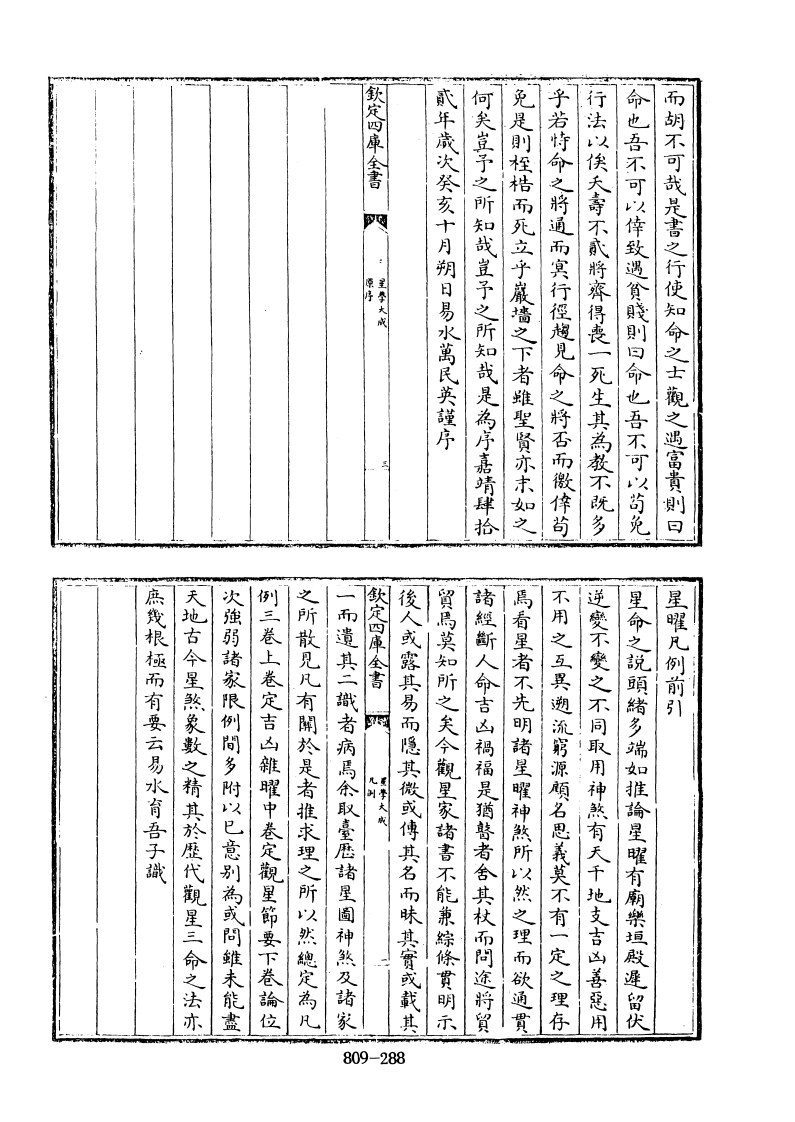 而胡不可哉是書之行使知命之士觀之遇富貴則曰
命也吾不可以倖致遇貧賤則曰命也吾不可以茍免
行法以俟夭壽不貳將齊得喪一死生其為教不既多
乎若恃命之將通而冥行徑趨見命之將否而徼倖茍
免是則桎梏而死立乎巖墻之下者雖聖賢亦末如之
何矣豈予之所知哉豈予之所知哉是為序嘉靖肆拾
貳年歲次癸亥十月朔日易水萬民英謹序
欽定四庫全書
星學大成
原序
三
星曜凡例前引
星命之說頭緒多端如推論星曜有廟樂垣殿遲留伏
逆變不變之不同取用神煞有天干地支吉凶善惡用
不用之互異遡流窮源顧名思義莫不有一定之理存
焉看星者不先明諸星曜神煞所以然之理而欲通貫
諸經斷人命吉凶禍福是猶瞽者舍其杖而問途將貿
貿焉莫知所之矣今觀星家諸書不能兼綜條貫明示
後人或露其易而隱其微或傳其名而昧其實或載其
欽定四庫全書
星學大成
凡例
一
一而遺其二識者病焉余取臺歷諸星圖神煞及諸家
之所散見凡有關於是者推求理之所以然總定為凡
例三卷上卷定吉凶雜曜中卷定觀星節要下卷論位
次強弱諸家限例間多附以已意別為或問雖未能盡
天地古今星煞象數之精其於歷代觀星三命之法亦
庶幾根極而有要云易水育吾子識
809-288